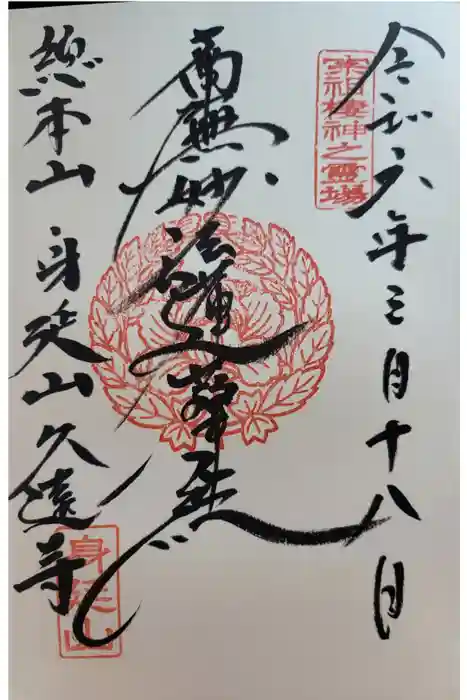 令和六年三月十八日
宗祖棲神之靈場
南無妙法蓮華経
総本山 身延山久遠寺
身延山